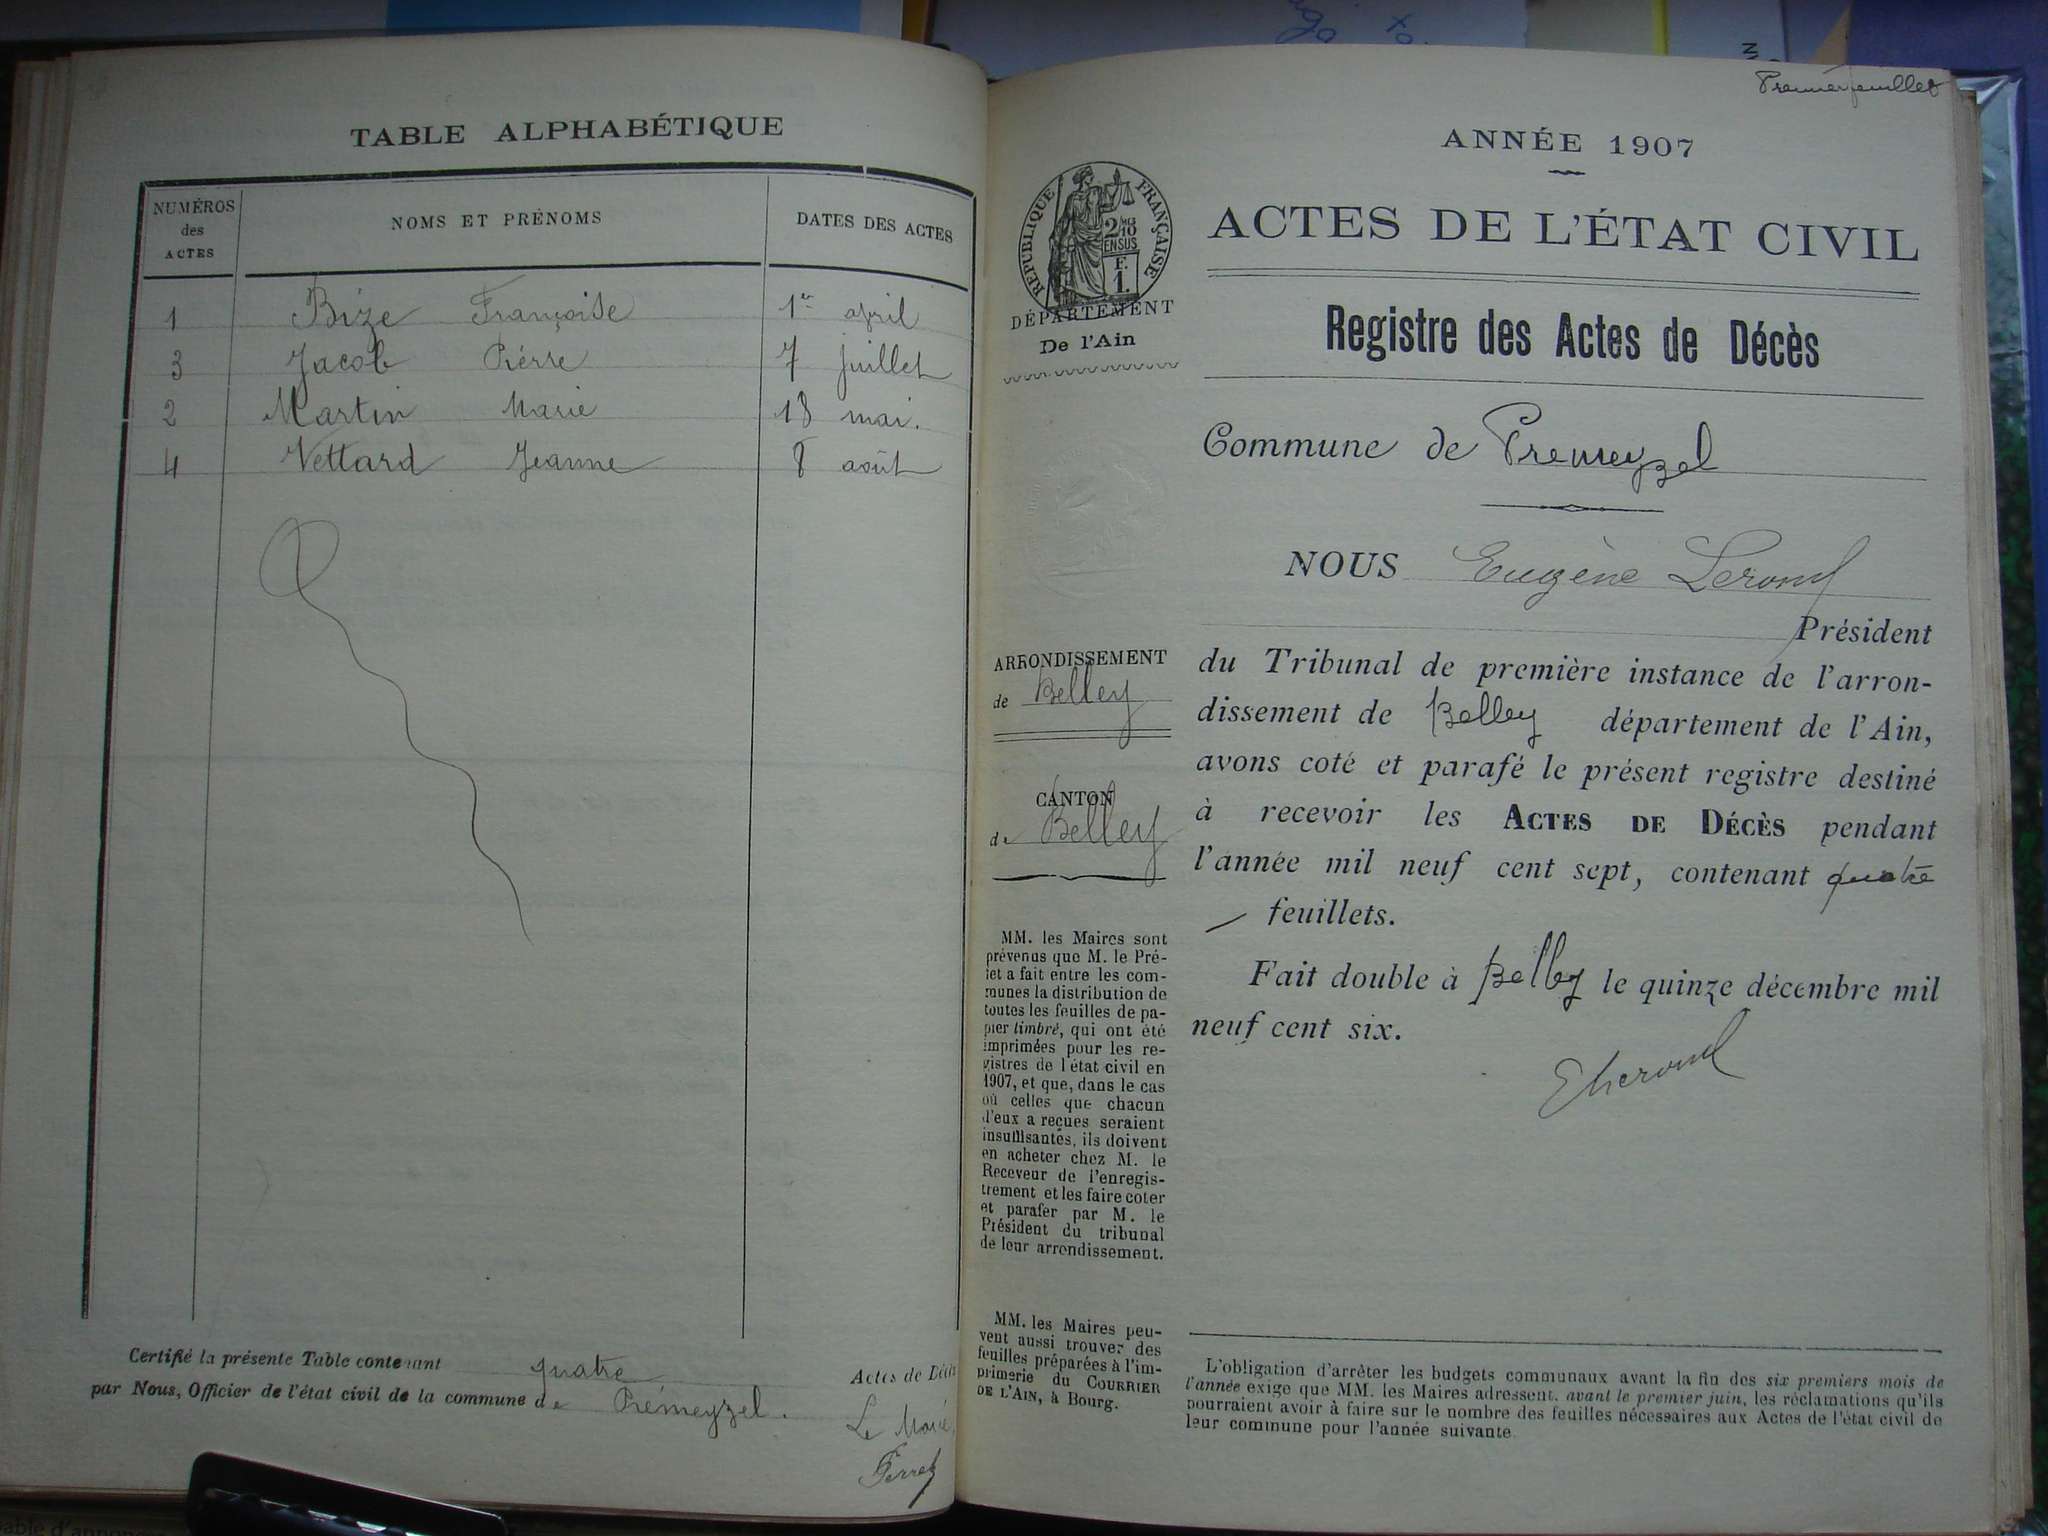 TABLE ALPHABÉTIQUE
NUMÉROS des ACTES
NOMS ET PRÉNOMS
DATES DES ACTES
1 Bize Françoise 1er april
3 Jacob Pierre 7 juillet
2 Martin Marie 13 mai.
4 Vettard Jeanne 8 août
Certifié la présente Table contenant quatre Actes de Décè
par Nous, Officier de l'état civil de la commune de Prémeyzel.
Le Maire,
Premier feuillet
ANNÉE 1907
RÉPUBLIQUE FRANÇAISE
2/10 EN SUS
F.
1.
DÉPARTEMENT
De l'Ain
ACTES DE L'ÉTAT CIVIL
Registre des Actes de Décès
Commune de Premeyzel
ARRONDISSEMENT
de Belley
CANTON
de Belley
MM. les Maires sont
prévenus que M. le Pré-
fet a fait entre les com-
munes la distribution de
toutes les feuilles de pa-
pier timbré, qui ont été
imprimées pour les re-
gistres de l'état civil en
1907, et que, dans le cas
où celles que chacun
d'eux a reçues seraient
insuffisantes, ils doivent
en acheter chez M. le
Receveur de l'enregis-
trement et les faire coter
et parafer par M. le
Président du tribunal
de leur arrondissement.
MM. les Maires peu-
vent aussi trouver des
feuilles préparées à l'im-
primerie du COURRIER
DE L'AIN, à Bourg.
NOUS Eugène Lerond
Président
du Tribunal de première instance de l'arron-
dissement de Belley département de l'Ain,
avons coté et parafé le présent registre destiné
à recevoir les ACTES DE DÉCÈS pendant
l'année mil neuf cent sept, contenant quatre
feuillets.
Fait double à Belley le quinze décembre mil
neuf cent six.
L'obligation d'arrêter les budgets communaux avant la fin des six premiers mois de
l'année exige que MM. les Maires adressent, avant le premier juin, les réclamations qu'ils
pourraient avoir à faire sur le nombre des feuilles nécessaires aux Actes de l'état civil de
leur commune pour l'année suivante.